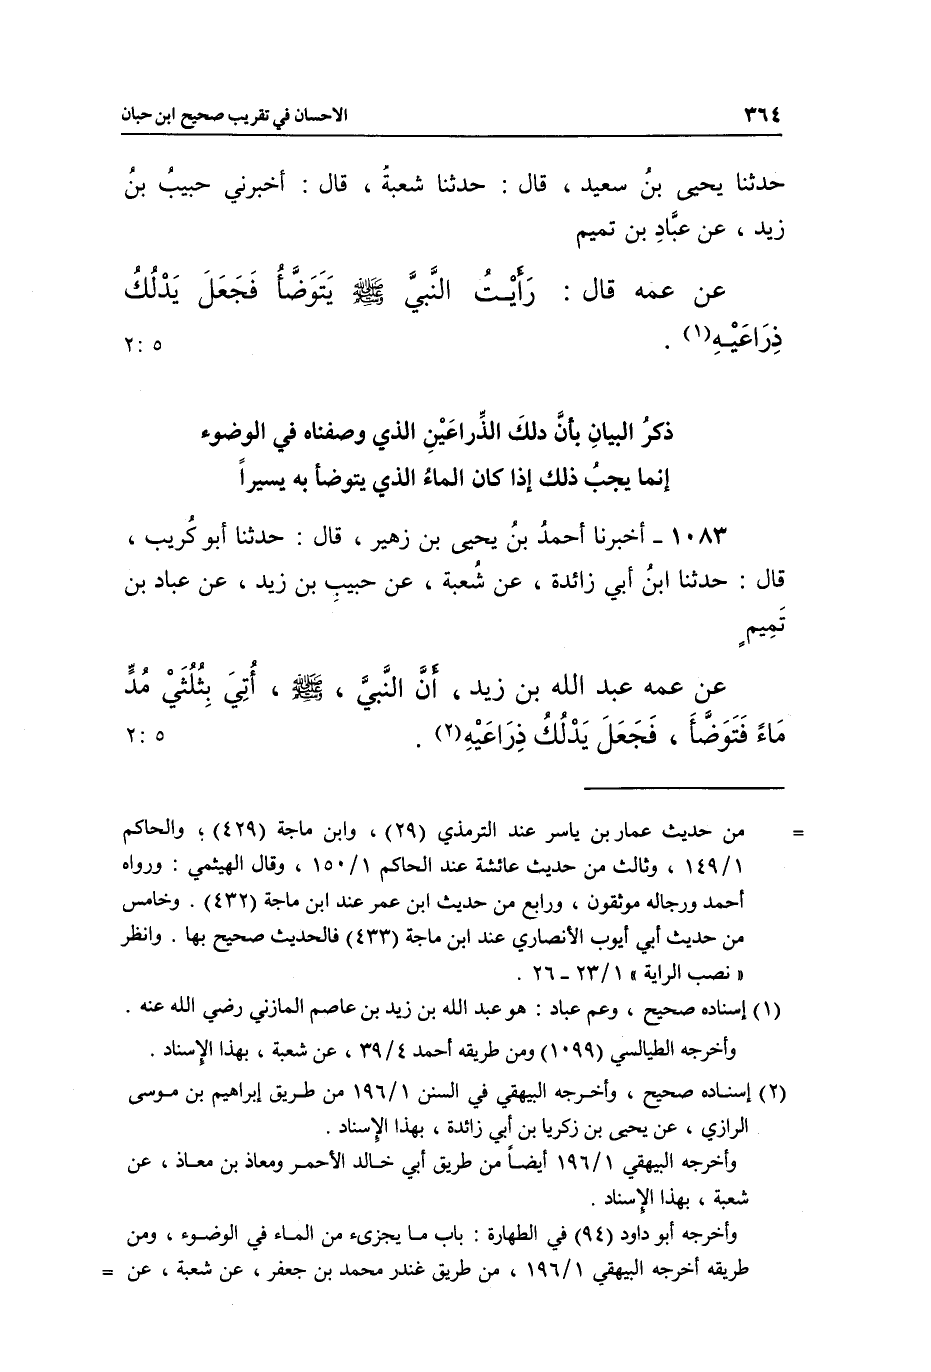 ٣٦٤ الاحسان في تقريب صحيح ابن حبان
حدثنا يحيى بنُ سعيد ، قال : حدثنا شعبةُ ، قال : أخبرني حبيبُ بنُ
زيد ، عن عبَّادِ بن تميم
عن عمه قال : رَأَيْتُ النَّبيَّ ﷺ يَتَوَضَّأُ فَجَعَلَ يَدْلُكُ
ذِرَاعَيْهِ(١) . ٥ :٢
ذكرُ البيانِ بأنَّ دلكَ الذِّراعَيْنِ الذي وصفناه في الوضوء
إنما يجبُ ذلك إذا كان الماءُ الذي يتوضأ به يسيراً
١٠٨٣ - أخبرنا أحمدُ بنُ يحيى بن زهير ، قال : حدثنا أبو كُريب ،
قال : حدثنا ابنُ أبي زائدة ، عن شُعبة ، عن حبيبِ بن زيد ، عن عباد بن
تَمِيمٍ
عن عمه عبد الله بن زيد ، أَنَّ النَّبيَّ ، ﷺ ، أُتِيَ بِثُلُثَيْ مُدٍّ
مَاءً فَتَوَضَّأَ ، فَجَعَلَ يَدْلُكُ ذِرَاعَيْهِ(٢) . ٥ :٢
= من حديث عمار بن ياسر عند الترمذي (٢٩) ، وابن ماجة (٤٢٩) ؛ والحاكم
١٤٩/١ ، وثالث من حديث عائشة عند الحاكم ١٥٠/١ ، وقال الهيثمي : ورواه
أحمد ورجاله موثقون ، ورابع من حديث ابن عمر عند ابن ماجة (٤٣٢) . وخامس
من حديث أبي أيوب الأنصاري عند ابن ماجة (٤٣٣) فالحديث صحيح بها . وانظر
« نصب الراية » ٢٣/١ - ٢٦ .
(١) إسناده صحيح ، وعم عباد : هو عبد الله بن زيد بن عاصم المازني رضي الله عنه .
وأخرجه الطيالسي (١٠٩٩) ومن طريقه أحمد ٣٩/٤ ، عن شعبة ، بهذا الإسناد .
(٢) إسناده صحيح ، وأخرجه البيهقي في السنن ١٩٦/١ من طريق إبراهيم بن موسى
الرازي ، عن يحيى بن زكريا بن أبي زائدة ، بهذا الإسناد .
وأخرجه البيهقي ١٩٦/١ أيضاً من طريق أبي خالد الأحمر ومعاذ بن معاذ ، عن
شعبة ، بهذا الإسناد .
وأخرجه أبو داود (٩٤) في الطهارة : باب ما يجزىء من الماء في الوضوء ، ومن
طريقه أخرجه البيهقي ١٩٦/١ ، من طريق غندر محمد بن جعفر ، عن شعبة ، عن =